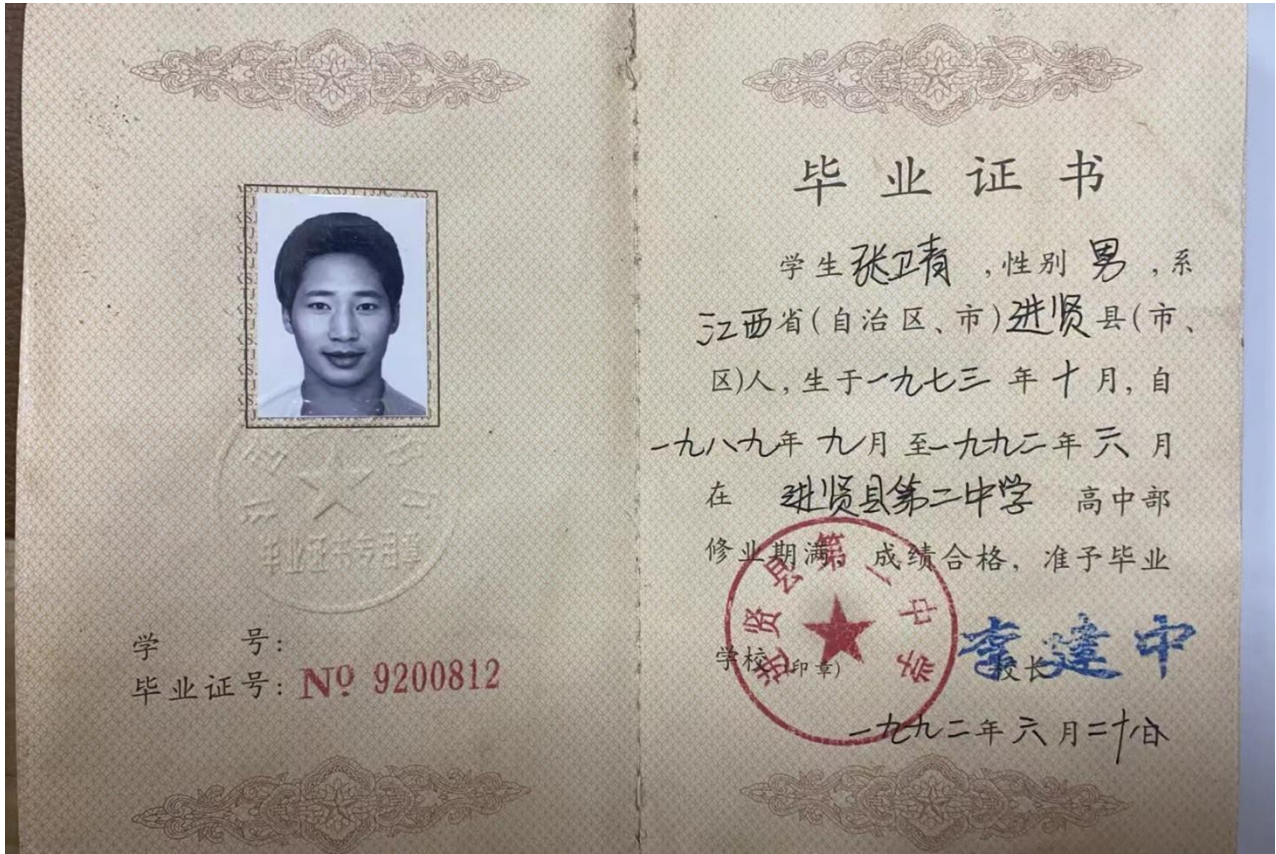 学 号:
毕业证号: Nº 9200812
毕业证书
学生 张卫青 ,性别 男 ,系
江西省(自治区、市)进贤县(市、
区)人,生于一九七三 年 十 月,自
一九八九年 九月 至一九九二年 六 月
在 进贤县第二中学 高中部
修业期满, 成绩合格, 准予毕业
进贤县第二中学
学校(印章) 校长 李建中
一九九二年 六 月二十日